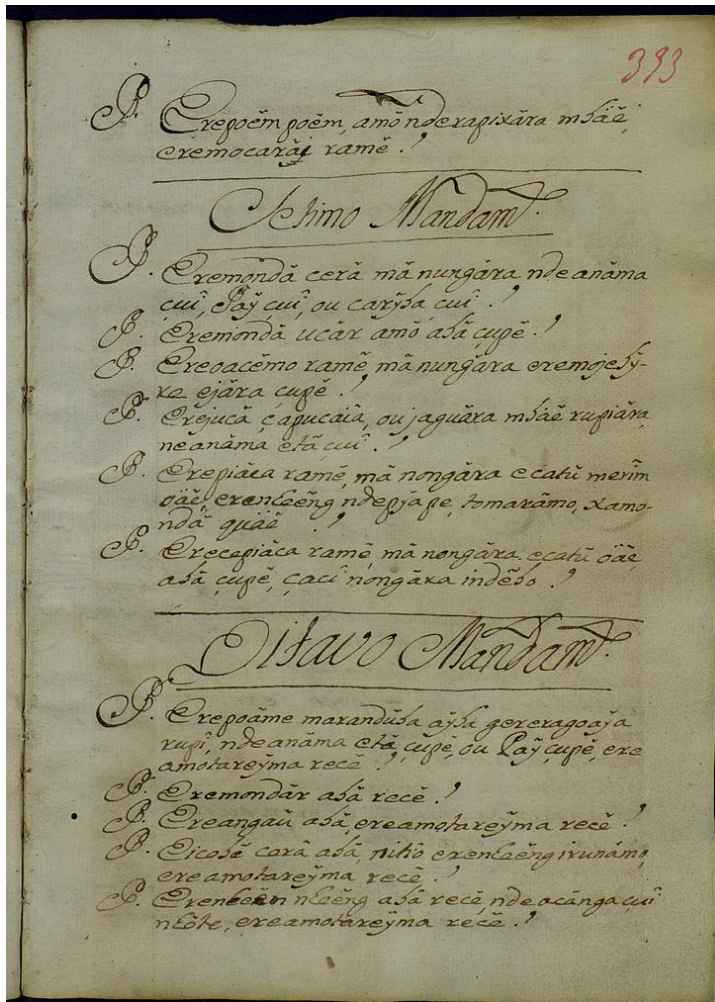 393
P. Erepoẽm poẽm, amõ nde rapixára mbäẽ,
eremocaräi ramẽ. ?
Setimo Mandam.to
P. Eremondã cerã mã nungára nde anáma
çuî, Paÿ çuî, ou carÿba çuî. ?
P. Eremondã ucár amõ abã çupẽ. ?
P. Ereoacẽmo ramẽ mã nungára eremojebÿ-
re ejára çupẽ. ?
P. Erejucã çapucaia, ou jaguára mbäẽ rupiára,
nẽanáma, etã çuî. ?
P. Erepiáca ramẽ, mã nongára ecatũ merim
öäẽ, erenheẽng ndepÿápe, tomarámo, xamo-
ndã quäẽ ?
P. Erecepiáca ramẽ, mã nongára ecatũ öäẽ,
abã çupẽ, çacî nongára indẽbo. ?
Oitavo Mandam.to
P. Erepoáme maranduba aÿba gereragoaÿa
rupî, nde anáma etã, çupẽ, ou Paÿ çupẽ, ere
amotareÿma recẽ. ?
P. Eremondár abã recẽ. ?
P. Ereangaũ abã, ereamotareÿma recẽ. ?
P. Oicobẽ cerã abã, nitio erenheẽng irunámo,
ereamotareÿma recẽ. ?
P. Erenheẽn nheẽng abã recẽ, nde acánga çuî
nhõte, ereamotareÿma recẽ. ?